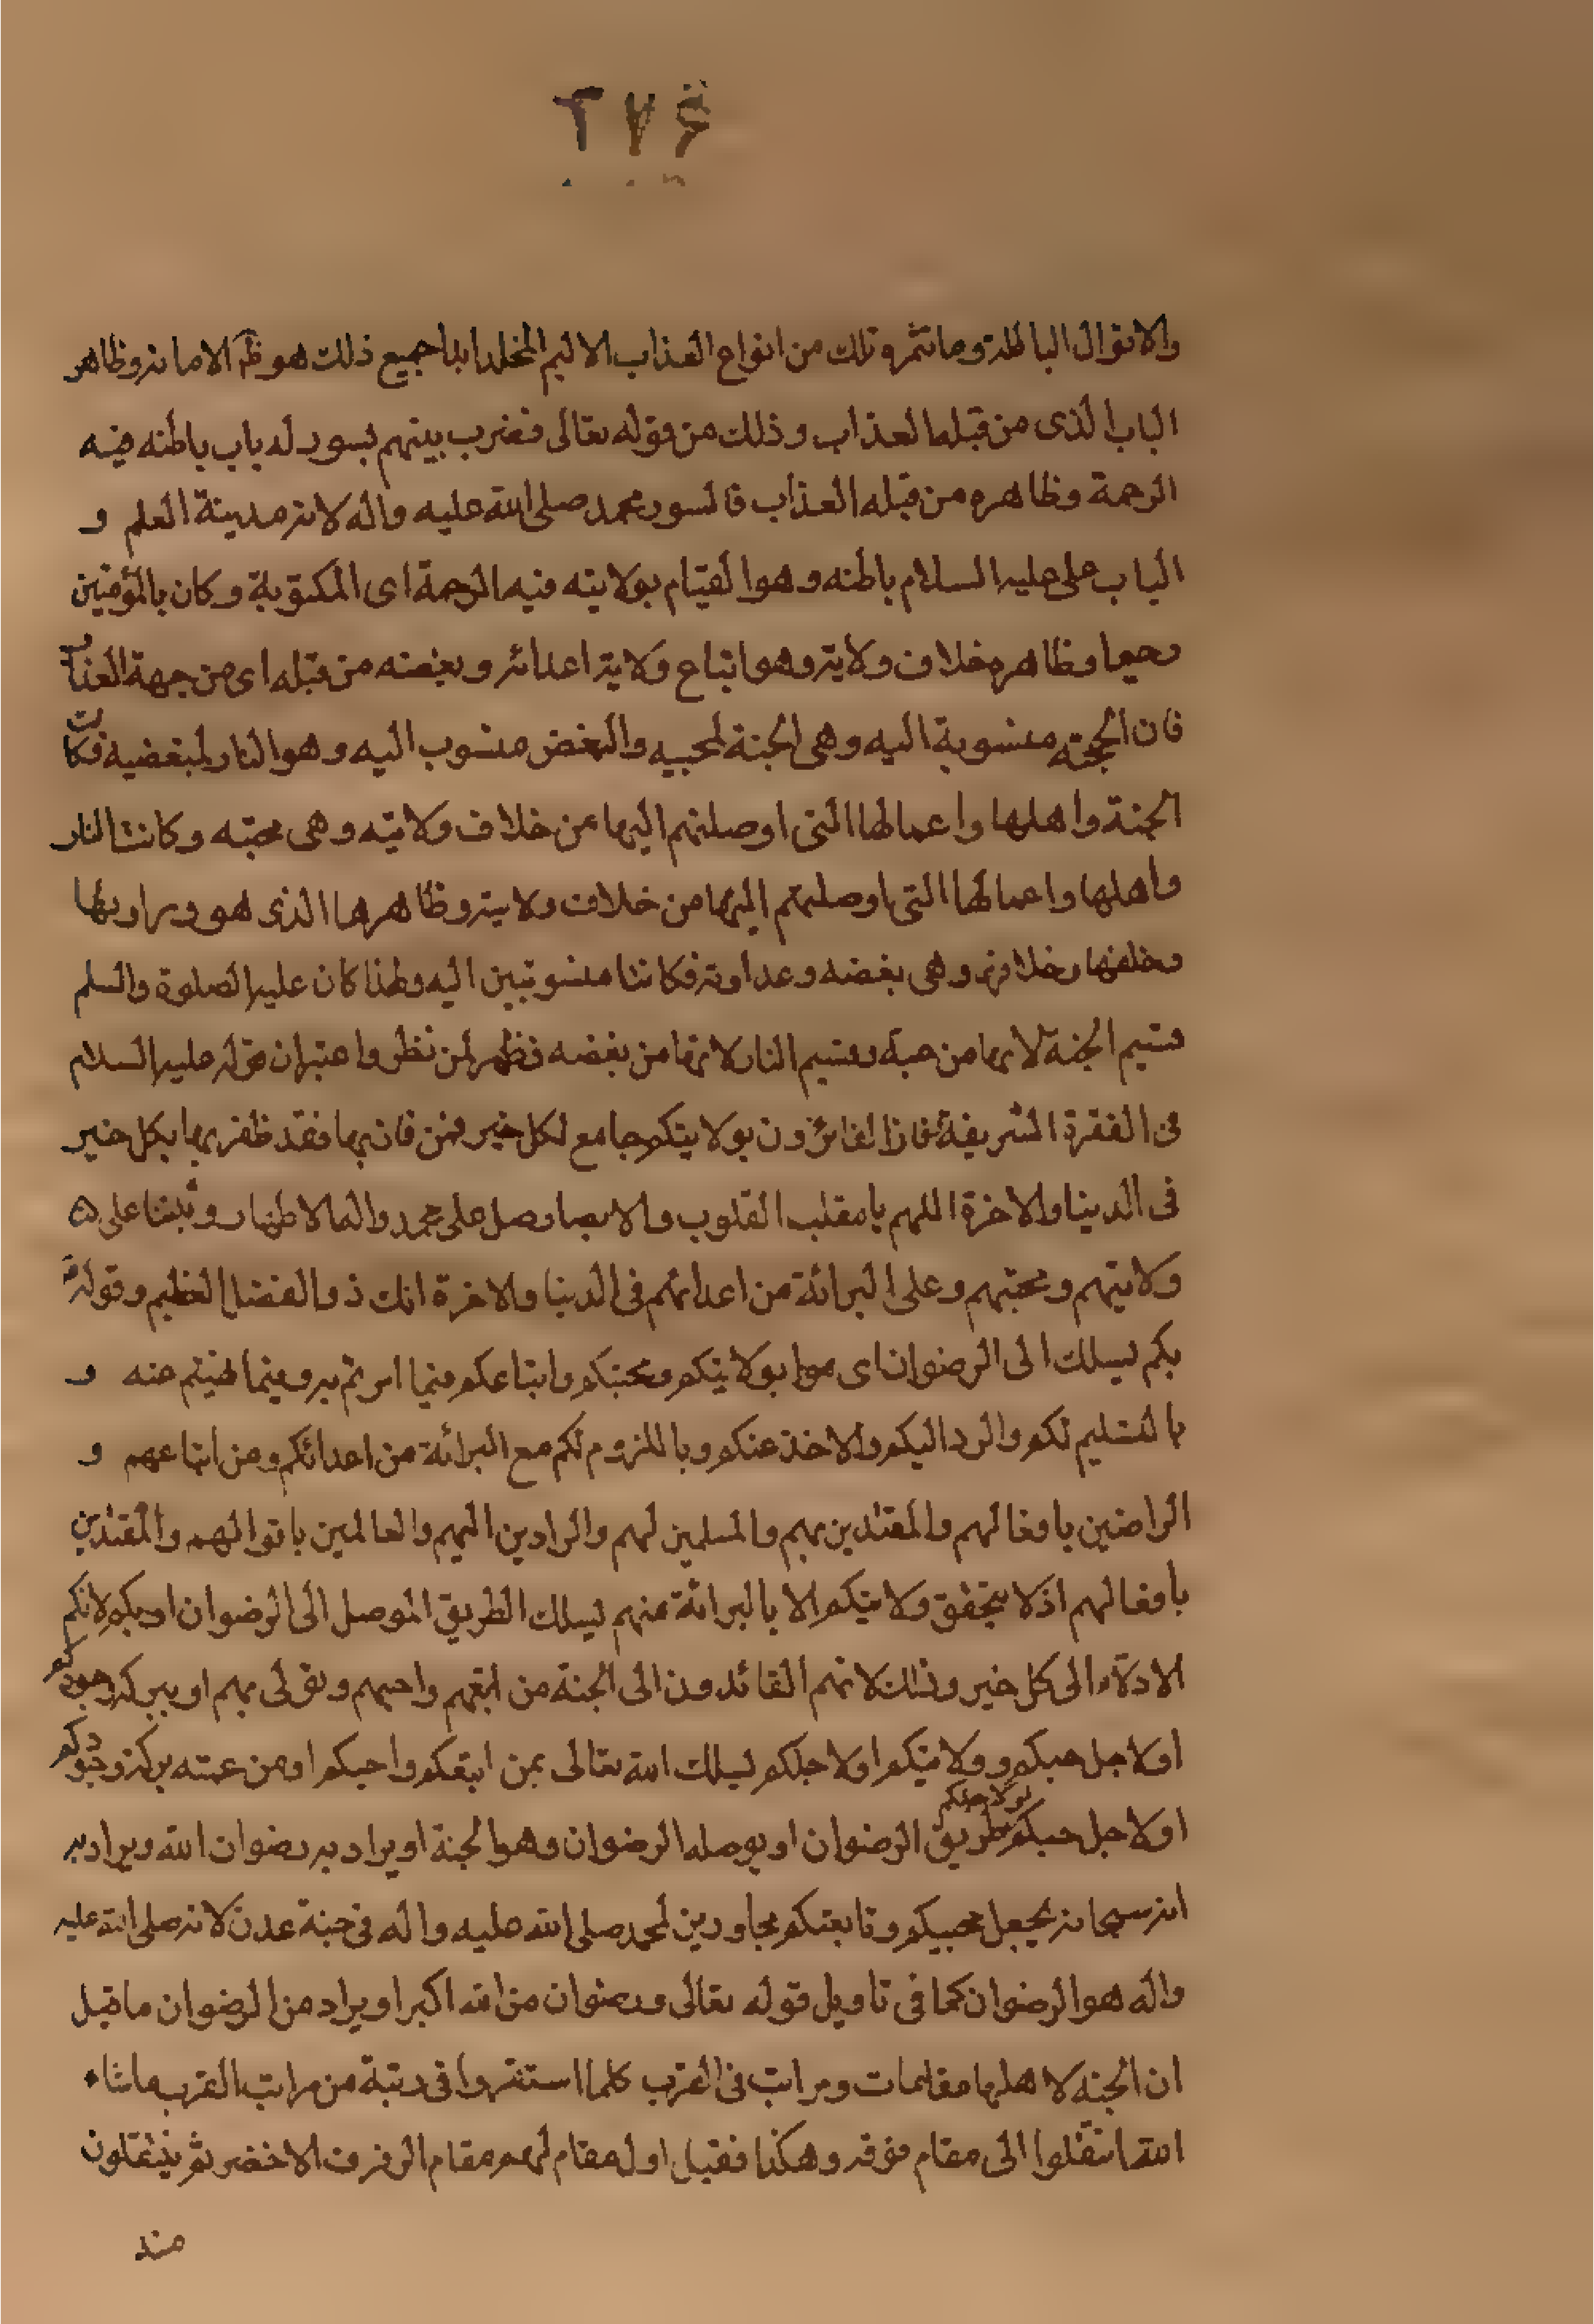 ٢٧۶
والاقوال الباطلة وما تثمره تلك من انواع العذاب الاليم المخلد ابدا جميع ذلك هو ظهر الامانه وظاهر
الباب الذى من قبله العذاب وذلك من قوله تعالى فضرب بينهم بسور له باب باطنه فيه
الرحمة وظاهره من قبله العذاب فالسور محمد صلى الله عليه واله لانه مدينة العلم و
الباب على عليه السلام باطنه وهو القيام بولايته فيه الرحمة اى المكتوبة وكان بالمؤمنين
رحيما وظاهره خلاف ولايته وهو اتباع ولاية اعدائه وبغضه من قبله اى من جهة العذاب
فان الجنة منسوبة اليه وهى الجنة لمحبيه والبغض منسوب اليه وهو النار لمبغضيه فكانت
الجنة واهلها واعمالها التى اوصلتهم اليها من خلاف ولايته وهى محبته وكانت النار
واهلها واعمالها التى اوصلتهم اليها من خلاف ولايته وظاهرها الذى هو وراوها
وخلفها وخلافها وهى بغضه وعداوته فكانتا منسوبتين اليه ولهذا كان عليه الصلوة والسلم
قسيم الجنة لانها من حبه وقسيم النار لانها من بغضه فظهر لمن نظر واعتبر ان قوله عليه السلام
فى الفقرة الشريفة فاز الفائزون بولايتكم جامع لكل خير فمن فاز بها فقد ظفر بها بكل خير
فى الدنيا والاخرة اللهم يا مقلب القلوب والابصار صل على محمد واله الاطهار وثبتنا على
ولايتهم ومحبتهم وعلى البرائة من اعدائهم فى الدنيا والاخرة انك ذو الفضل العظيم وقوله
بكم يسلك الى الرضوان اى بولايتكم ومحبتكم واتباعكم فيما امرتم به وفيما نهيتم عنه و
بالتسليم لكم والرد اليكم والاخذ عنكم وباللزوم لكم مع البرائة من اعدائكم ومن اتباعهم و
الراضين بافعالهم والمقتدين بهم والمسلمين لهم والرادين اليهم والعاملين باقوالهم والمقتدين
بافعالهم اذ لا يتحقق ولايتكم الا بالبرائة منهم يسلك الطريق الموصل الى الرضوان او بكم لانكم
الادلاء الى كل خير وذلك لانهم القائدون الى الجنة من اتبعهم واحبهم وتولى بهم او ببركة وجودكم
او لاجل حبكم وولايتكم او لاجلكم يسلك الله تعالى بمن اتبعكم واحبكم او من عمته بركة وجودكم
او لاجل حبكم بولايتكم طريق الرضوان او يوصله الرضوان وهو الجنة او يراد به رضوان الله ويراد به
انه سبحانه يجعل محبيكم وتابعيكم مجاورين لمحمد صلى الله عليه واله فى جنة عدن لانه صلى الله عليه
واله هو الرضوان كما فى تاويل قوله تعالى ورضوان من الله اكبر او يراد من الرضوان ما قيل
ان الجنة لاهلها مقامات ومراتب فى القرب كلما استقروا فى رتبة من مراتب القرب ما شاء
الله انتقلوا الى مقام فوقه وهكذا فقيل اول مقام لهم مقام الرفرف الاخضر ثم ينتقلون
منه